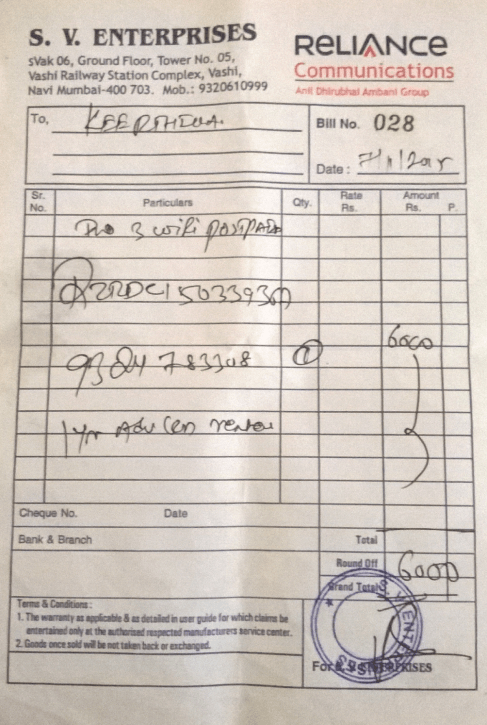 S. V. ENTERPRISES
sVak 06, Ground Floor, Tower No. 05,
Vashi Railway Station Complex, Vashi,
Navi Mumbai-400 703. Mob.: 9320610999
RELIANCE
Communications
Anil Dhirubhai Ambani Group
To,
Bill No. 028
Date :
Sr. No. Particulars Qty. Rate Rs. Amount Rs. P.
3 wifi
9324 783308 1 6000
1 yr Adv
Cheque No. Date
Bank & Branch
Total
Round Off 6000
Grand Total
Terms & Conditions :
1. The warranty as applicable & as detailed in user guide for which claims be
entertained only at the authorised respected manufacturers service center.
2. Goods once sold will be not taken back or exchanged.
For S. V. ENTERPRISES